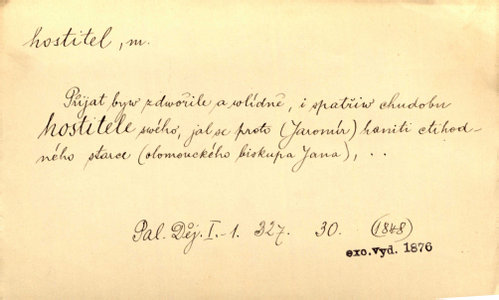 hostitel, m.
Přijat byw zdwořile a wlídně, i spatřiw chudobu
hostitele swého, jal se proto (Jaromír) haniti ctihod-
ného starce (olomouckého biskupa Jana), ..
Pal. Děj. I.-1. 327. 30. (1848)
exc. vyd. 1876